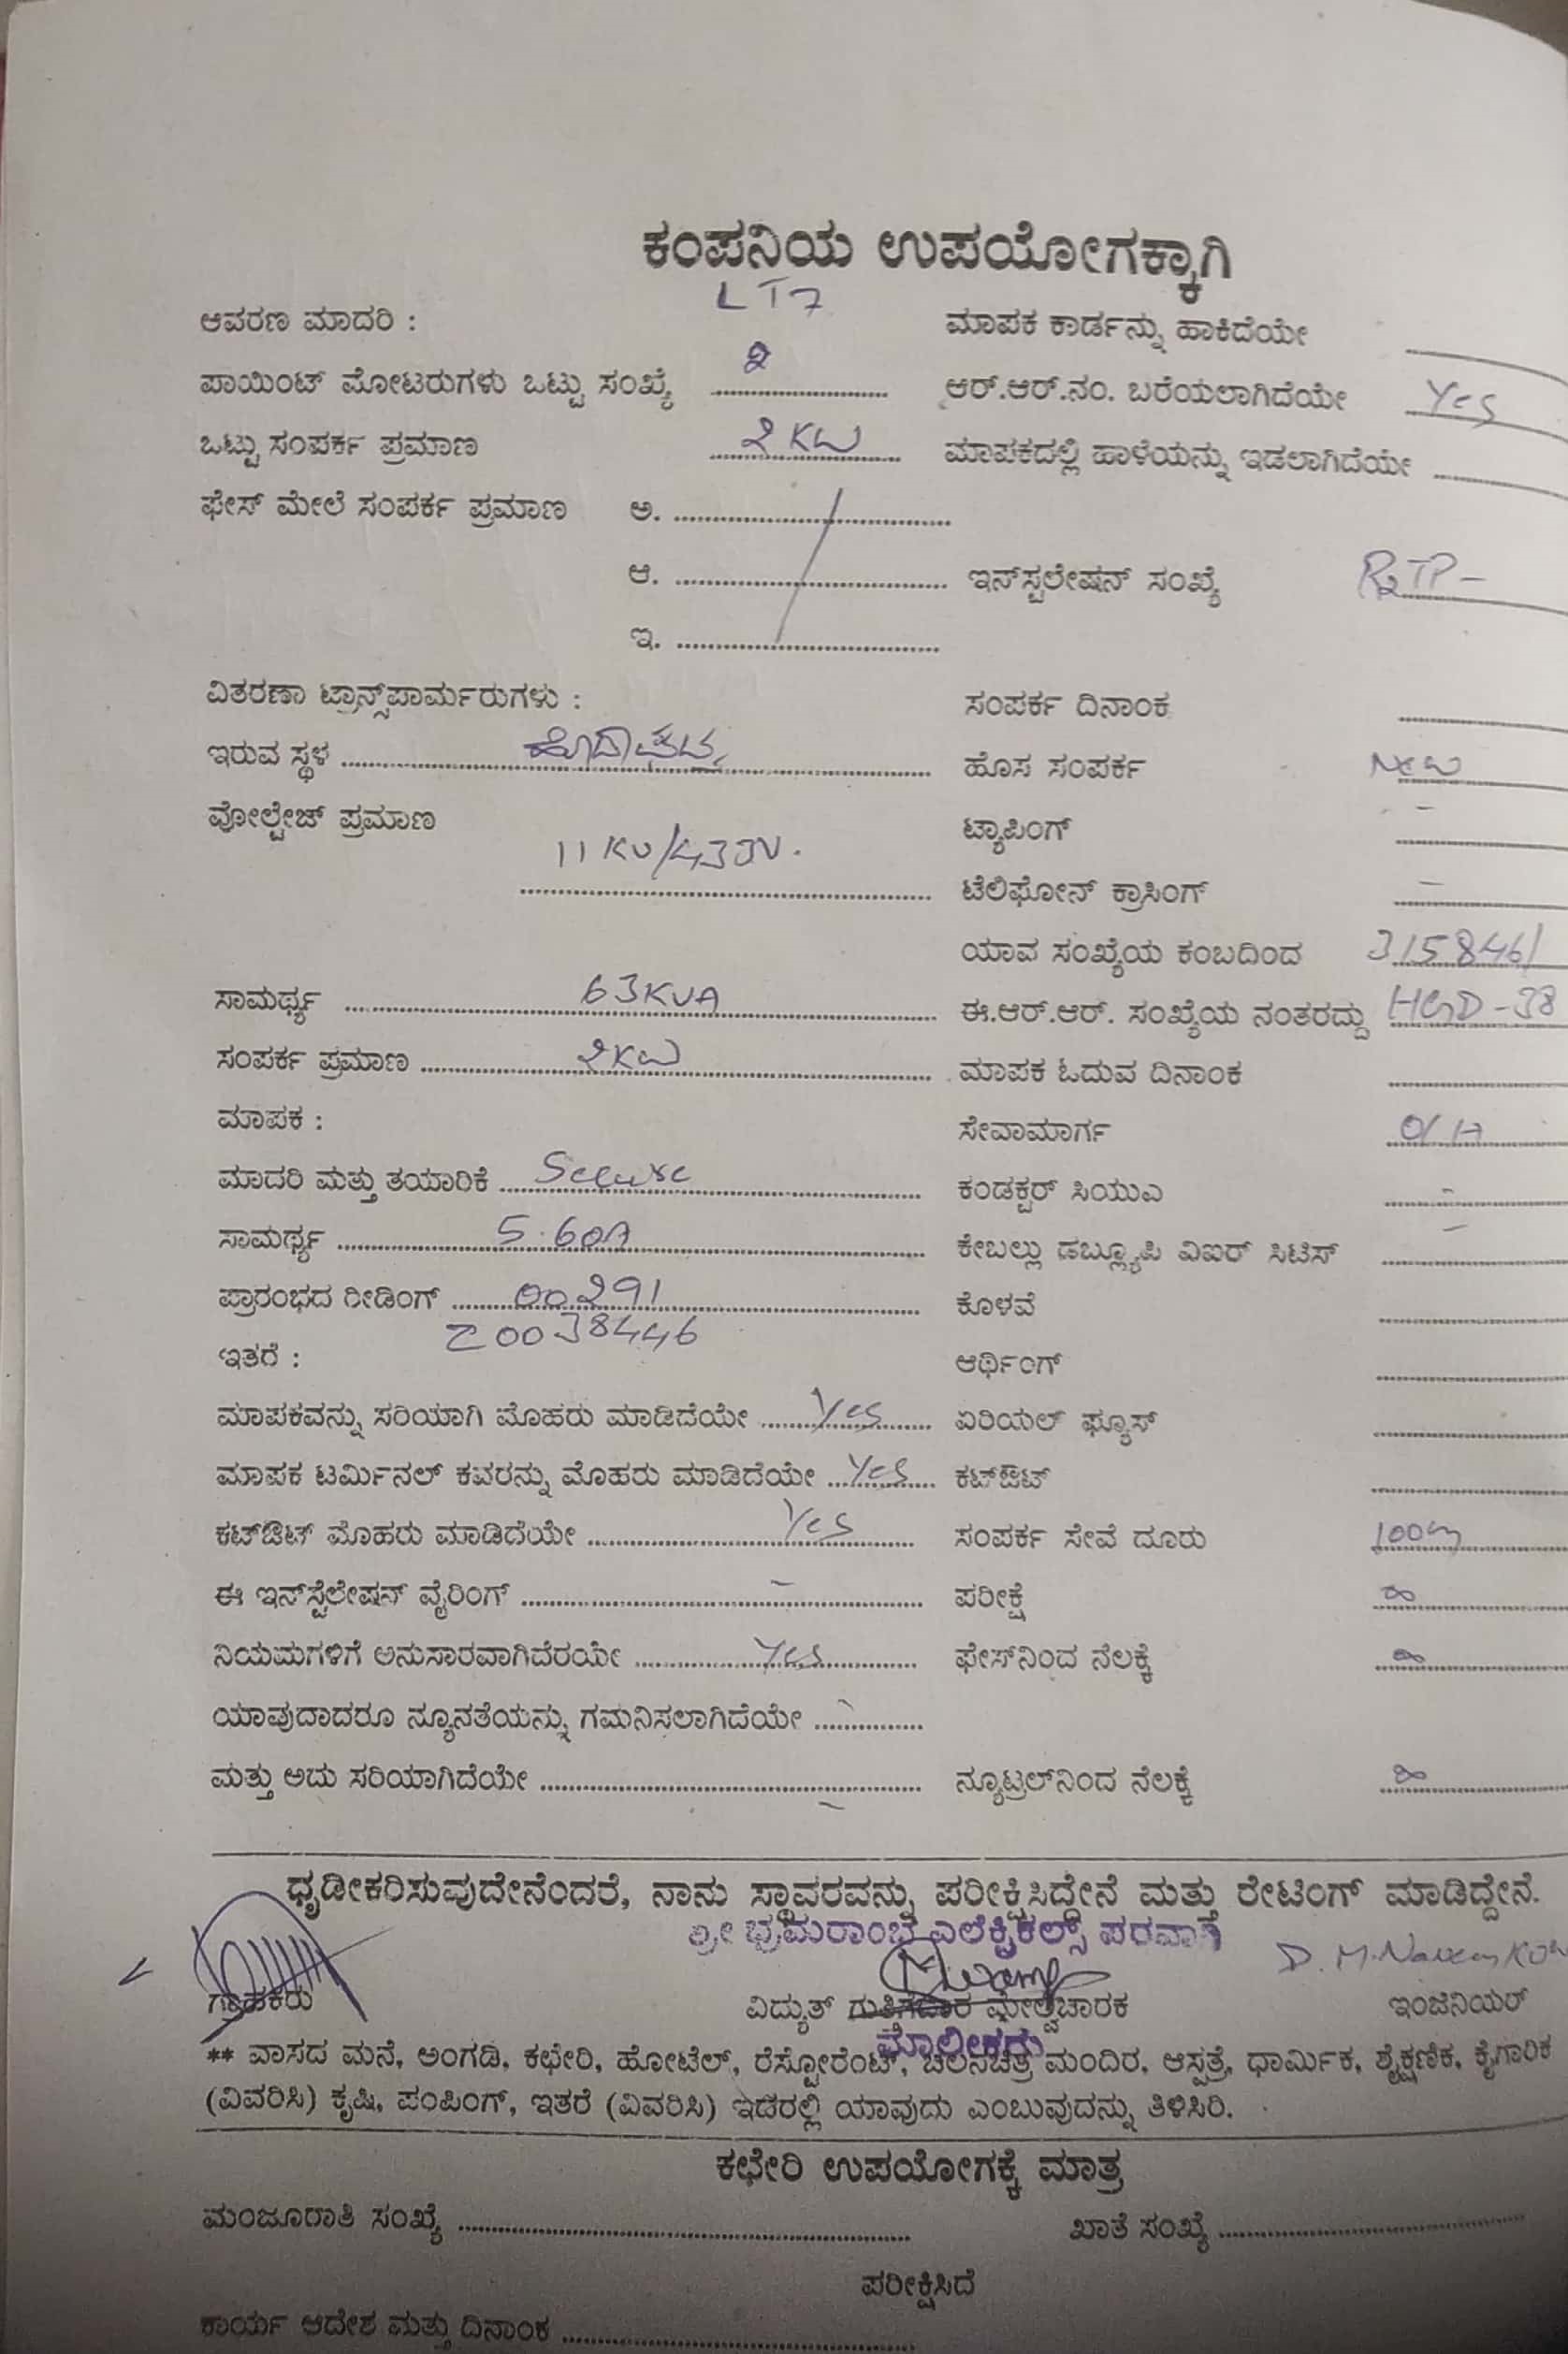 ಕಂಪನಿಯ ಉಪಯೋಗಕ್ಕಾಗಿ
LT7
ಆವರಣ ಮಾದರಿ : ಮಾಪಕ ಕಾರ್ಡನ್ನು ಹಾಕಿದೆಯೇ
ಪಾಯಿಂಟ್ ಮೋಟರುಗಳು ಒಟ್ಟು ಸಂಖ್ಯೆ 2 ಆರ್.ಆರ್.ನಂ. ಬರೆಯಲಾಗಿದೆಯೇ Yes
ಒಟ್ಟು ಸಂಪರ್ಕ ಪ್ರಮಾಣ 2 KW ಮಾಪಕದಲ್ಲಿ ಹಾಳೆಯನ್ನು ಇಡಲಾಗಿದೆಯೇ
ಫೇಸ್ ಮೇಲೆ ಸಂಪರ್ಕ ಪ್ರಮಾಣ ಅ.
ಆ. ಇನ್‌ಸ್ಟಲೇಷನ್ ಸಂಖ್ಯೆ
ಇ.
ವಿತರಣಾ ಟ್ರಾನ್ಸ್‌ಪಾರ್ಮರುಗಳು : ಸಂಪರ್ಕ ದಿನಾಂಕ
ಇರುವ ಸ್ಥಳ ಹೊಸ ಸಂಪರ್ಕ New
ವೋಲ್ಟೇಜ್ ಪ್ರಮಾಣ ಟ್ಯಾಪಿಂಗ್ -
11 KV/433V. ಟೆಲಿಫೋನ್ ಕ್ರಾಸಿಂಗ್ -
ಯಾವ ಸಂಖ್ಯೆಯ ಕಂಬದಿಂದ 315846/
ಸಾಮರ್ಥ್ಯ 63KVA ಈ.ಆರ್.ಆರ್. ಸಂಖ್ಯೆಯ ನಂತರದ್ದು HGD-38
ಸಂಪರ್ಕ ಪ್ರಮಾಣ 2KW ಮಾಪಕ ಓದುವ ದಿನಾಂಕ
ಮಾಪಕ : ಸೇವಾಮಾರ್ಗ O/H
ಮಾದರಿ ಮತ್ತು ತಯಾರಿಕೆ Secure ಕಂಡಕ್ಟರ್ ಸಿಯುಎ -
ಸಾಮರ್ಥ್ಯ 5-60A ಕೇಬಲ್ಲು ಡಬ್ಲ್ಯೂಪಿ ವಿಐರ್ ಸಿಟಿಸ್ -
ಪ್ರಾರಂಭದ ರೀಡಿಂಗ್ 00291 ಕೊಳವೆ
Z0038446
ಇತರೆ : ಆರ್ಥಿಂಗ್
ಮಾಪಕವನ್ನು ಸರಿಯಾಗಿ ಮೊಹರು ಮಾಡಿದೆಯೇ Yes ಏರಿಯಲ್ ಫ್ಯೂಸ್
ಮಾಪಕ ಟರ್ಮಿನಲ್ ಕವರನ್ನು ಮೊಹರು ಮಾಡಿದೆಯೇ Yes ಕಟ್‌ಔಟ್
ಕಟ್‌ಔಟ್ ಮೊಹರು ಮಾಡಿದೆಯೇ Yes ಸಂಪರ್ಕ ಸೇವೆ ದೂರು 100m
ಈ ಇನ್‌ಸ್ಟೆಲೇಷನ್ ವೈರಿಂಗ್ - ಪರೀಕ್ಷೆ ∞
ನಿಯಮಗಳಿಗೆ ಅನುಸಾರವಾಗಿದೆರಯೇ Yes ಫೇಸ್‌ನಿಂದ ನೆಲಕ್ಕೆ ∞
ಯಾವುದಾದರೂ ನ್ಯೂನತೆಯನ್ನು ಗಮನಿಸಲಾಗಿದೆಯೇ -
ಮತ್ತು ಅದು ಸರಿಯಾಗಿದೆಯೇ - ನ್ಯೂಟ್ರಲ್‌ನಿಂದ ನೆಲಕ್ಕೆ ∞
ಧೃಡೀಕರಿಸುವುದೇನೆಂದರೆ, ನಾನು ಸ್ಥಾವರವನ್ನು ಪರೀಕ್ಷಿಸಿದ್ದೇನೆ ಮತ್ತು ರೇಟಿಂಗ್ ಮಾಡಿದ್ದೇನೆ.
ಶ್ರೀ ಭ್ರಮರಾಂಭ ಎಲೆಕ್ಟ್ರಿಕಲ್ಸ್ ಪರವಾಗಿ
ಗ್ರಾಹಕರು ವಿದ್ಯುತ್ ಗುತ್ತಿಗೆದಾರ ಮೇಲ್ವಿಚಾರಕ ಇಂಜಿನಿಯರ್
ಮಾಲೀಕರು
** ವಾಸದ ಮನೆ, ಅಂಗಡಿ, ಕಛೇರಿ, ಹೋಟೆಲ್, ರೆಸ್ಟೋರೆಂಟ್, ಚಲನಚಿತ್ರ ಮಂದಿರ, ಆಸ್ಪತ್ರೆ, ಧಾರ್ಮಿಕ, ಶೈಕ್ಷಣಿಕ, ಕೈಗಾರಿಕ
(ವಿವರಿಸಿ) ಕೃಷಿ, ಪಂಪಿಂಗ್, ಇತರೆ (ವಿವರಿಸಿ) ಇದರಲ್ಲಿ ಯಾವುದು ಎಂಬುವುದನ್ನು ತಿಳಿಸಿರಿ.
ಕಛೇರಿ ಉಪಯೋಗಕ್ಕೆ ಮಾತ್ರ
ಮಂಜೂರಾತಿ ಸಂಖ್ಯೆ ಖಾತೆ ಸಂಖ್ಯೆ
ಪರೀಕ್ಷಿಸಿದೆ
ಕಾರ್ಯ ಆದೇಶ ಮತ್ತು ದಿನಾಂಕ